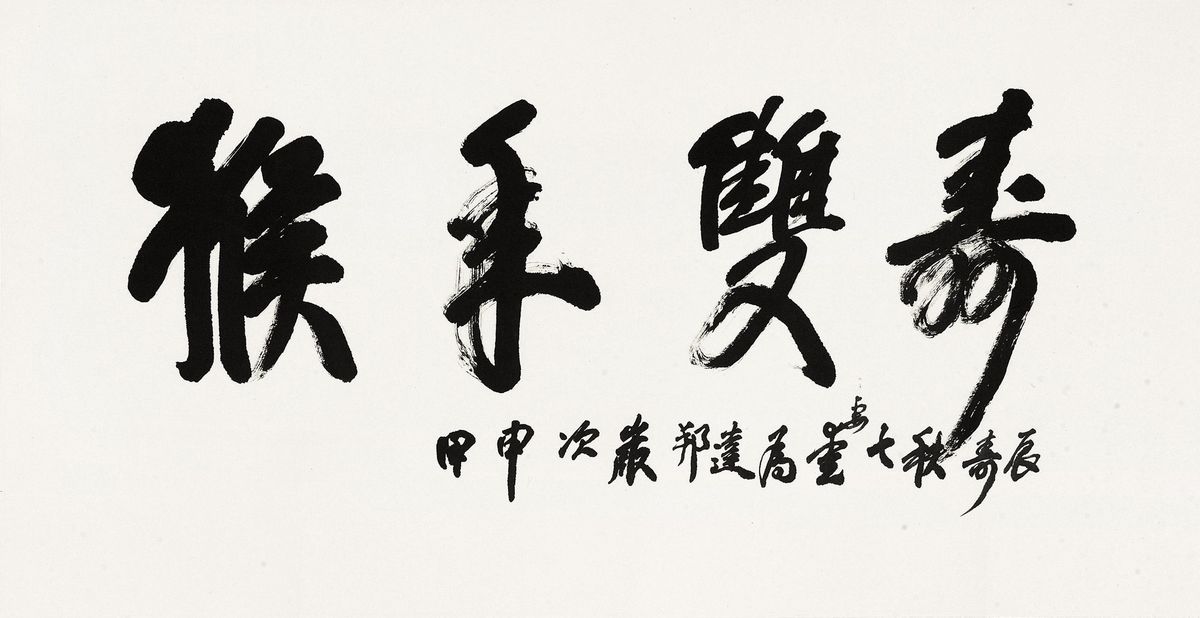 猴年雙壽
甲申次邦達為七秩壽辰